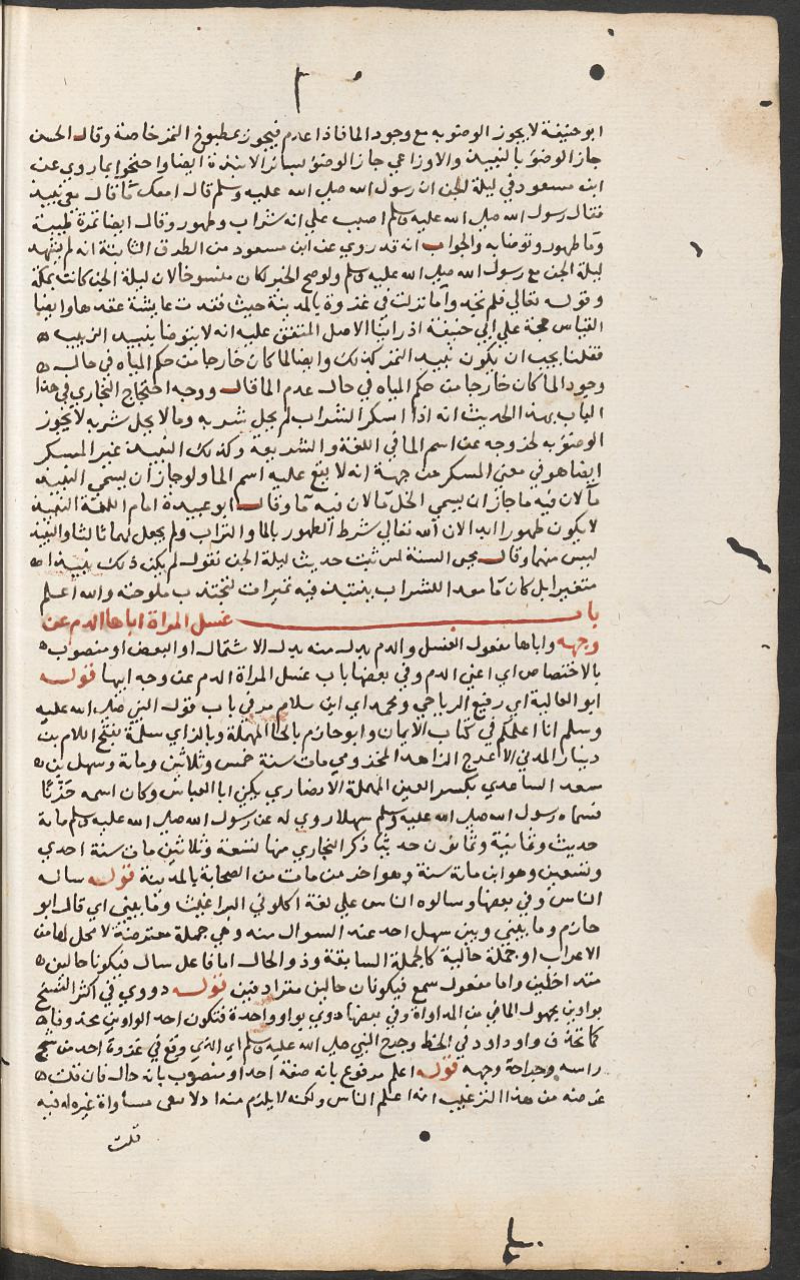 ابوحنيفة لا يجوز الوضو به مع وجود الما فاذا عدم فيجوز بمطبوخ التمر خاصة وقال الحسن
جاز الوضو بالنبيذ والاوزاعي جاز الوضو بسائر الانبذة ايضا واحتجوا بما روي عن
ابن مسعود في ليلة الجن ان رسول الله صلى الله عليه وسلم قال امعك ما قال معي نبيذ
فقال رسول الله صلى الله عليه وسلم اصبب علي انه شراب وطهور وقال ايضا تمرة طيبة
وما طهور وتوضا به والجواب انه قد روي عن ابن مسعود من الطرق الثابتة انه لم يشهد
ليلة الجن مع رسول الله صلى الله عليه وسلم ولو صح الخبر لكان منسوخا لان ليلة الجن كانت بمكة
وقوله تعالى فلم تجدوا ما نزلت في غزوة بالمدينة حيث فقدت عايشة عقدها وايضا
القياس حجة على ابي حنيفة اذ راينا الاصل المتفق عليه انه لا يتوضا بنبيذ الزبيب
فقلنا يجب ان يكون نبيذ التمر كذلك وايضا لما كان خارجا من حكم المياه في حال
وجود الما كان خارجا من حكم المياه في حال عدم الما قال ووجه احتجاج البخاري في هذا
الباب بهذا الحديث انه اذا اسكر الشراب لم يحل شربه وما لا يحل شربه لا يجوز
الوضو به لخروجه عن اسم الما في اللغة والشريعة وكذلك النبيذ غير المسكر
ايضا هو في معنى المسكر من جهة انه لا يقع عليه اسم الما ولو جاز ان يسمي النبيذ
ما لان فيه ما جاز ان يسمي الخل ما لان فيه ما وقال ابو عبيدة امام اللغة النبيذ
لا يكون طهورا ابدا لان الله تعالى شرط الطهور بالما والتراب ولم يجعل لهما ثالثا والنبيذ
ليس منهما وقال محيى السنة لئن ثبت حديث ليلة الجن نقول لم يكن ذلك نبيذا
متغيرا بل كان ما معدا للشراب ينتبذ فيه تميرات لتجتذب ملوحته والله اعلم
باب غسل المراة اباها الدم عن
وجهه واباها مفعول الغسل والدم بدل منه بدل الاشتمال او البعض او منصوب
بالاختصاص اي اعني الدم وفي بعضها باب غسل المراة الدم عن وجه ابيها قوله
ابو العالية اي رفيع الرياحي ومحمد اي ابن سلام مر في باب قول النبي صلى الله عليه
وسلم انا اعلمكم في كتاب الايمان وابو حازم بالحا المهملة وبالزاي سلمة بفتح اللام بن
دينار المدني الاعرج الزاهد المخزومي مات سنة خمس وثلاثين وماية وسهل بن
سعد الساعدي بكسر العين المهملة الانصاري يكنى ابا العباس وكان اسمه حزنا
فسماه رسول الله صلى الله عليه وسلم سهلا روي له عن رسول الله صلى الله عليه وسلم ماية
حديث وثمانية وثمانون حديثا ذكر البخاري منها تسعة وثلاثين مات سنة احدي
وتسعين وهو ابن ماية سنة وهو اخر من مات من الصحابة بالمدينة قوله ساله
الناس وفي بعضها وسالوه الناس على لغة اكلوني البراغيث وما بيني اي قال ابو
حازم وما بيني وبين سهل احد عند السوال منه وهي جملة معترضة لا محل لها من
الاعراب او جملة حالية كالجملة السابقة وذو الحال اما فاعل سال فيكونا حالين
متداخلين واما مفعول سمع فيكونان حالين مترادفين قوله دووي في اكثر النسخ
بواوين مجهول الماضي من المداواة وفي بعضها دوي بواو واحدة فتكون احد الواوين محذوفا
كما تحذف واو داود في الخط وجرح النبي صلى الله عليه وسلم اي الذي وقع في غزوة احد من شج
راسه وجراحة وجهه قوله اعلم مرفوع بانه صفة احد او منصوب بانه حال فان قلت
غرضه من هذا التركيب انه اعلم الناس ولكنه لا يلزم منه اذ لا ينفى مساواة غيره له فيه
قلت